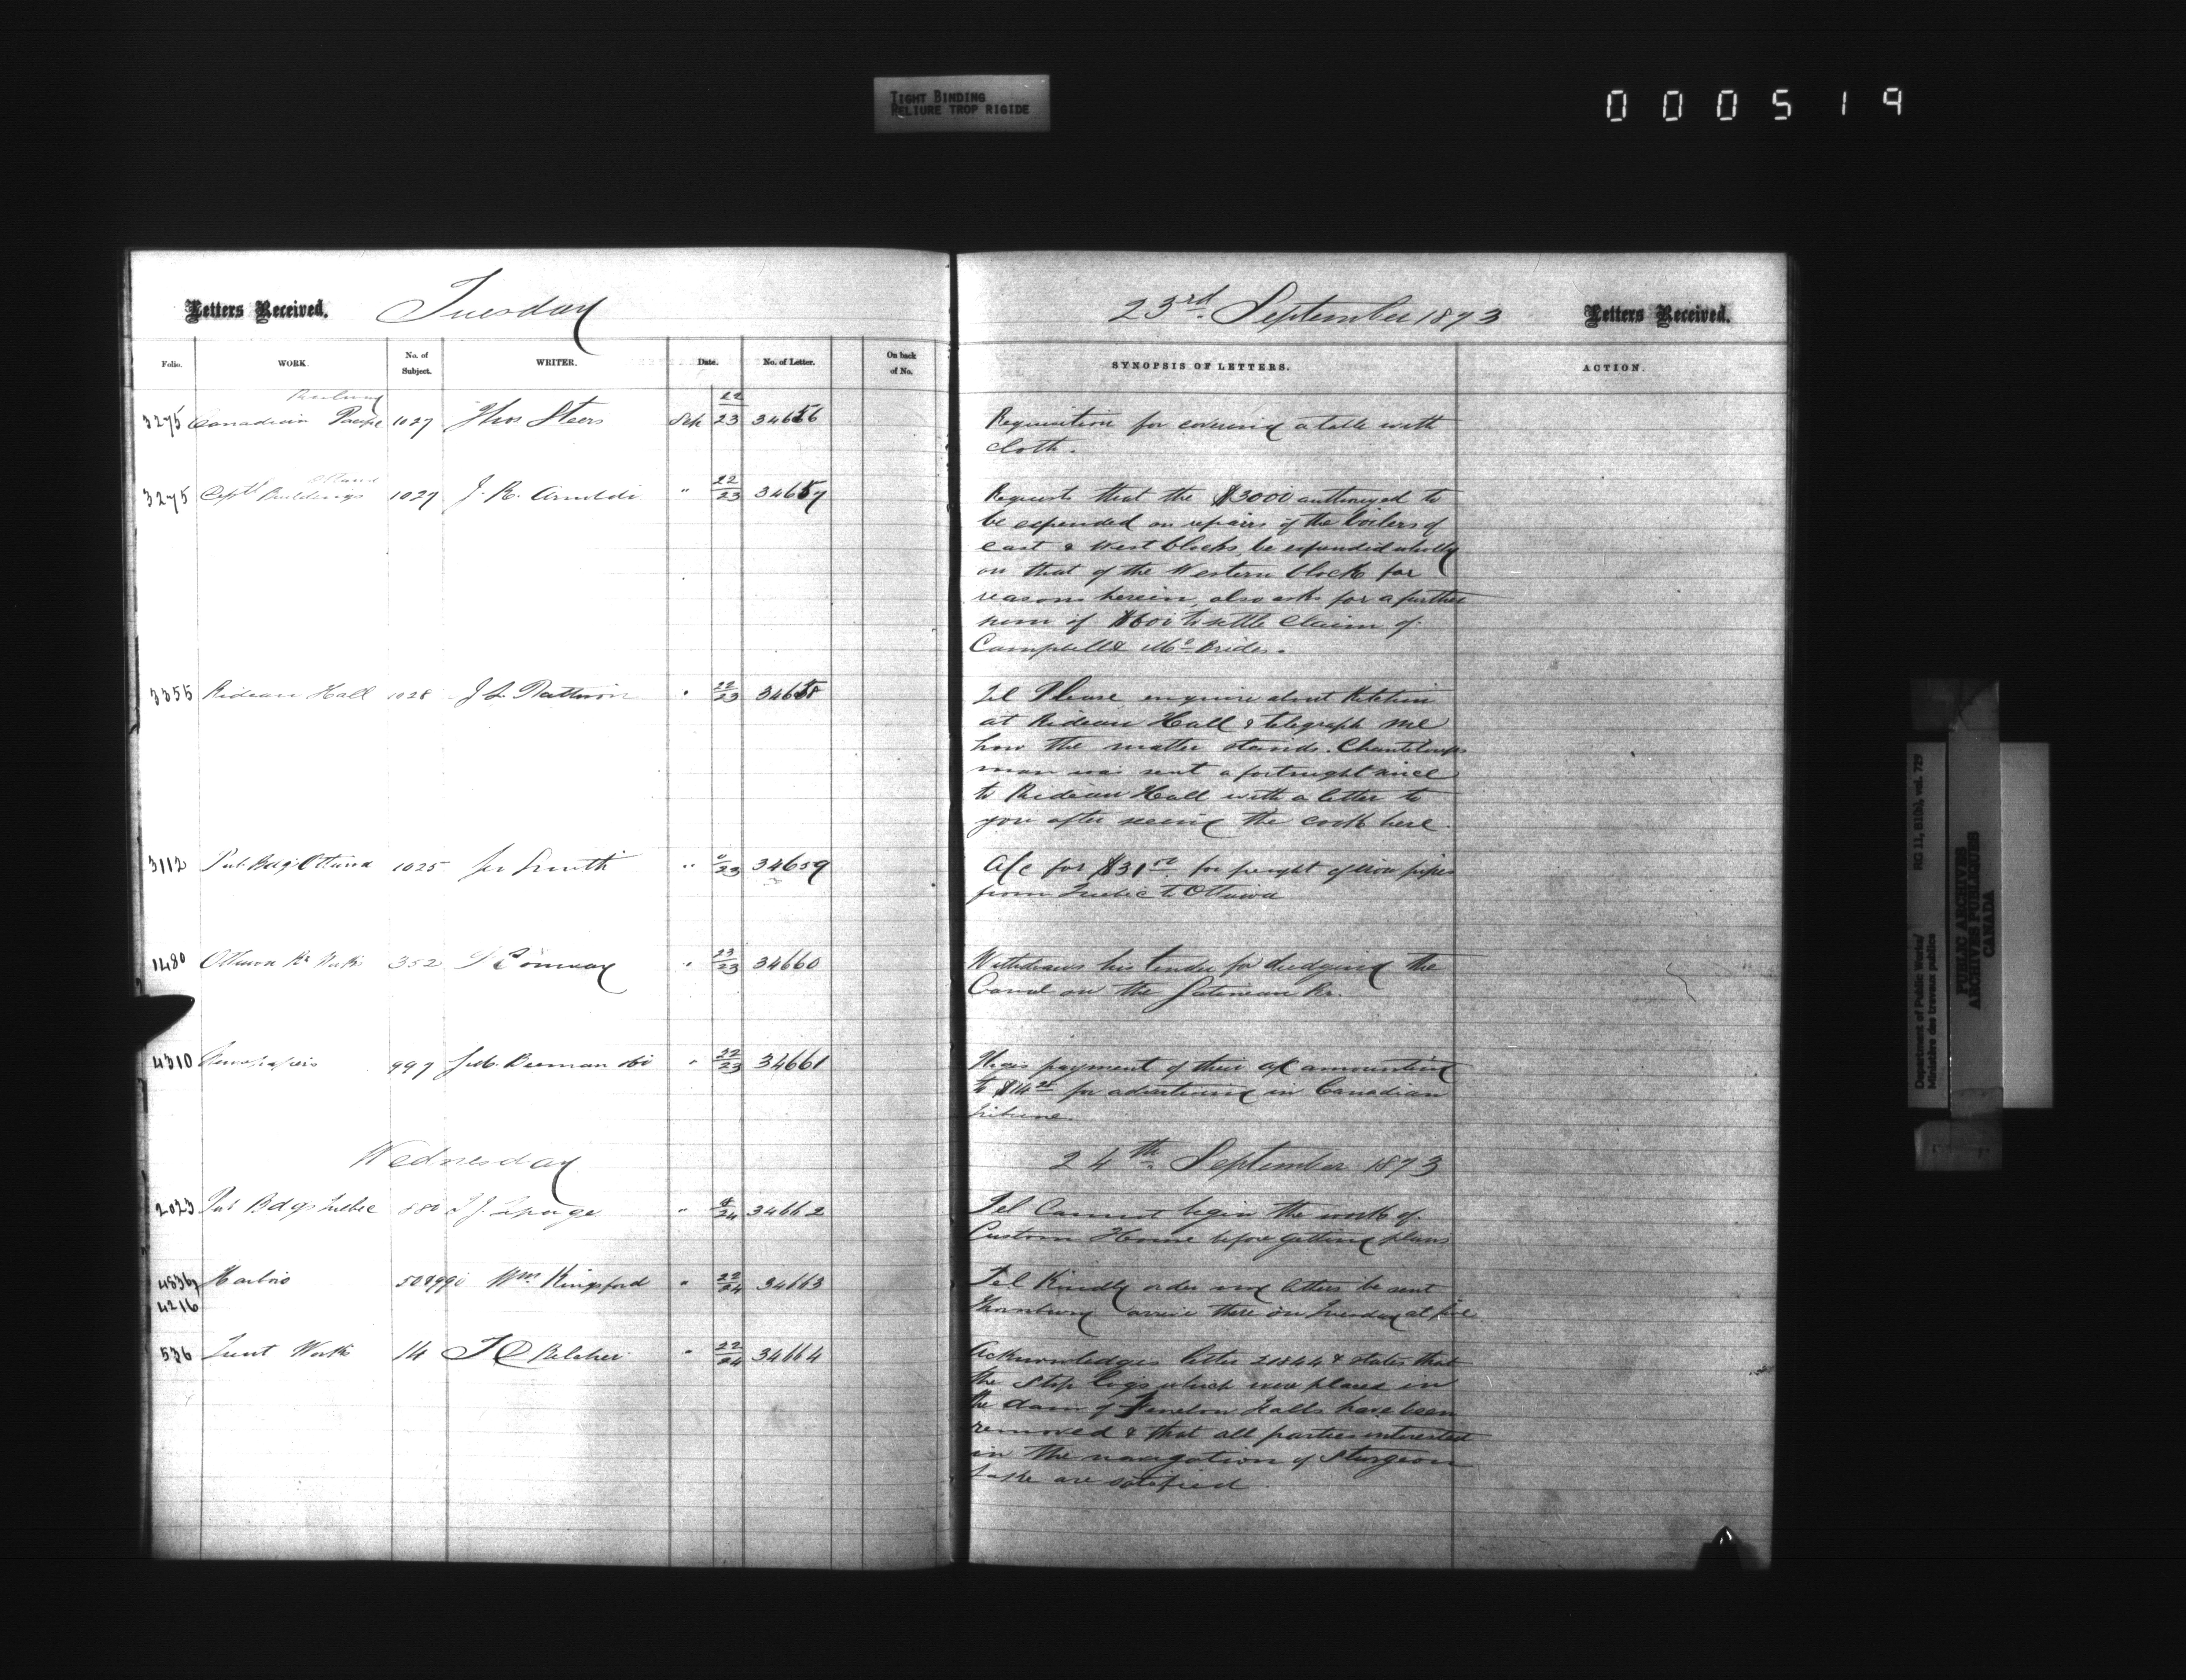 TIGHT BINDING
RELIURE TROP RIGIDE
000519
Letters Received. Tuesday
23rd September 1873 Letters Received.
Folio. WORK. No. of Subject. WRITER. Date. No. of Letter. On back of No.
SYNOPSIS OF LETTERS. ACTION.
Railway
3275 Canadian Pacific 1027 Thos Steers Sep 22/23 34656
Requisition for covering a table with
cloth.
Ottawa
3275 Deptl Buildings 1027 J. R. Arnoldi " 22/23 34657
Requests that the $3000 authorized to
be expended on repairs of the boilers of
east & west blocks, be expended wholly
on that of the Western block for
reasons herein, also asks for a further
sum of $600 to settle claim of
Campbell & McBrides.
3355 Rideau Hall 1028 " 22/23 34658
Tel Please enquire about Kitchen
at Rideau Hall & telegraph me
how the matter stands. Chanteloups
man was sent a fortnight since
to Rideau Hall with a letter to
you after seeing the cook here.
3112 Pub Bdgs Ottawa 1025 Smith " /23 34659
A/c for $31 for freight of iron pipes
from Quebec to Ottawa
1480 Ottawa Rr Works 352 Conway " 23/23 34660
Withdraws his tender for dredging the
Canal on the Gatineau Rr.
4310 Newspapers 997 " 22/23 34661
payment of their a/c amounting
to $14 for advertising in Canadian
Tribune.
Wednesday
24th September 1873
2023 Pub Bdgs Quebec 880 " /24 34662
Tel Cannot begin the work of
Custom House before getting plans
4836 Harbors Wm Kingsford " 22/24 34663
4216
Tel Kindly order my letters be sent
Thornbury arrive there on Tuesday at
536 Trent Works 14 T D Belcher " 22/24 34664
Acknowledges letter 21844 & states that
the stop logs which were placed in
the dam of Fenelon Falls have been
removed & that all parties interested
in the navigation of Sturgeon
Lake are satisfied.
Department of Public Works/ RG 11, B1(b), vol. 729
Ministère des travaux publics
PUBLIC ARCHIVES
ARCHIVES PUBLIQUES
CANADA